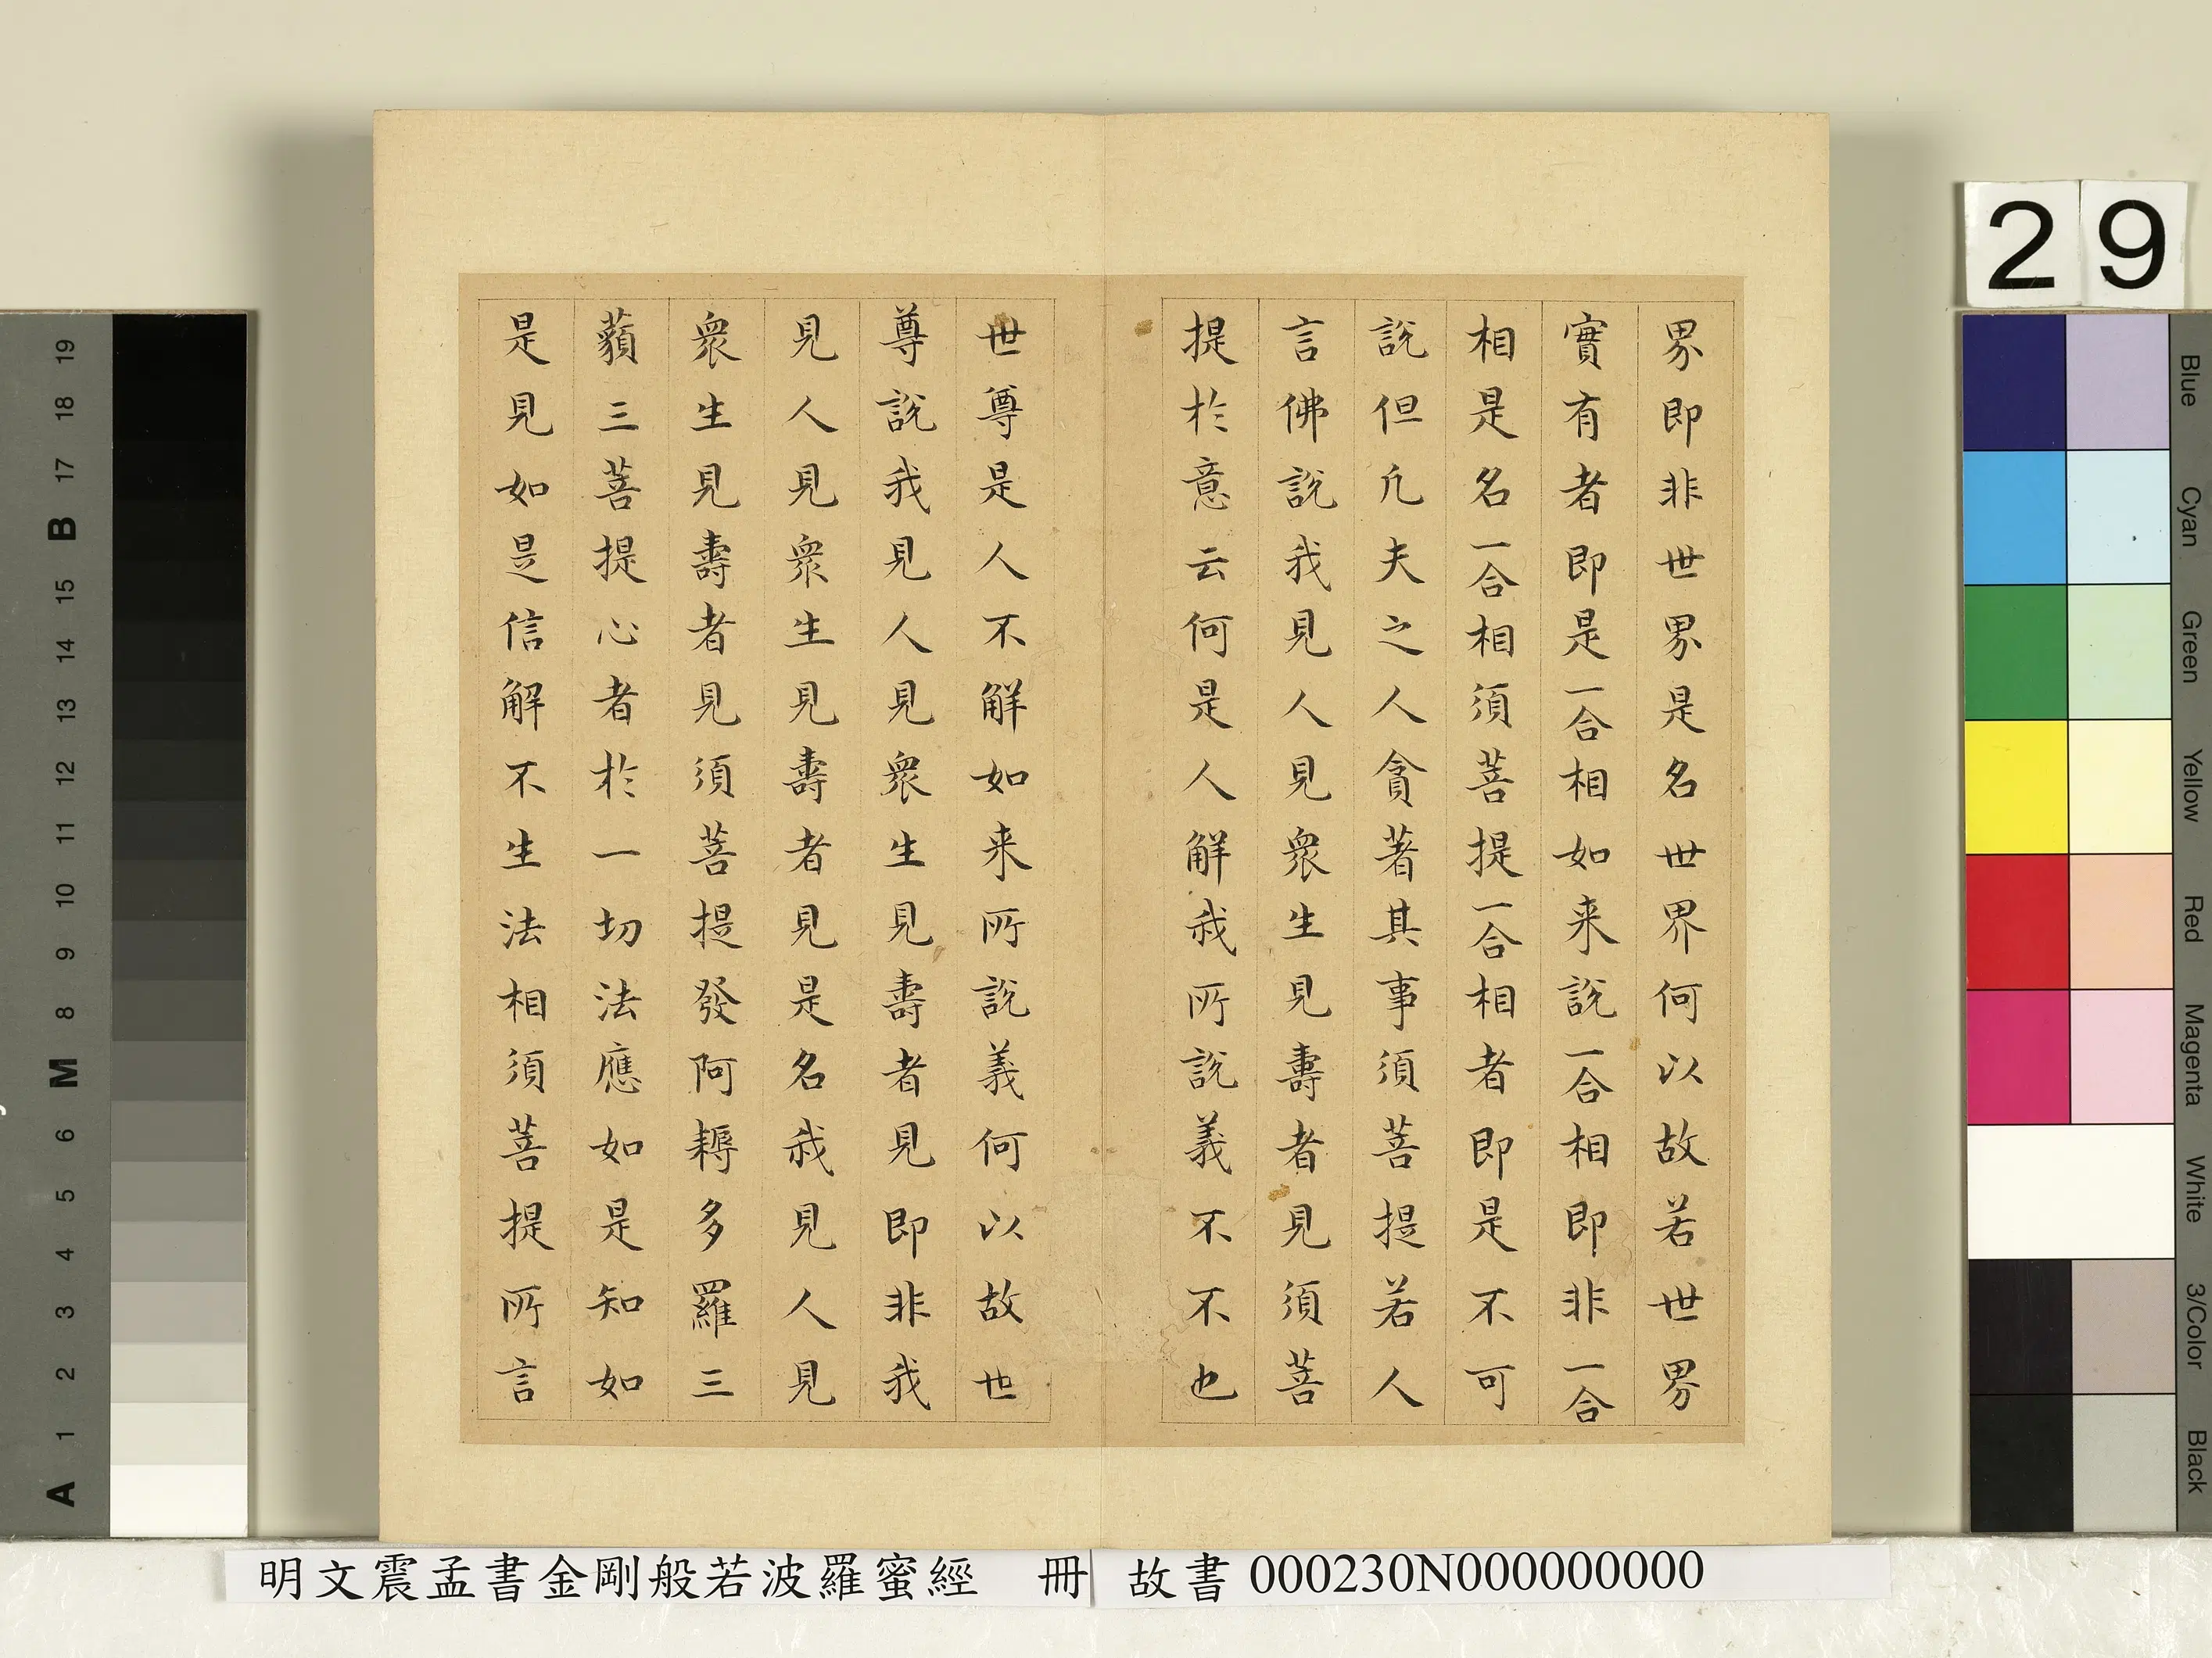 界即非世界是名世界何以故若世界
實有者即是一合相如来說一合相即非一合
相是名一合相須菩提一合相者即是不可
說但凡夫之人貪著其事須菩提若人
言佛說我見人見衆生見壽者見須菩
提於意云何是人解我所說義不不也
世尊是人不解如来所說義何以故世
尊說我見人見衆生見壽者見即非我
見人見衆生見壽者見是名我見人見
衆生見壽者見須菩提發阿耨多羅三
藐三菩提心者於一切法應如是知如
是見如是信解不生法相須菩提所言
明文震孟書金剛般若波羅蜜經 冊 故書000230N000000000
29
19
18
17
B
16
15
14
13
12
11
10
9
8
M
6
5
4
3
2
1
A
Blue
Cyan
Green
Yellow
Red
Magenta
White
3/Color
Black